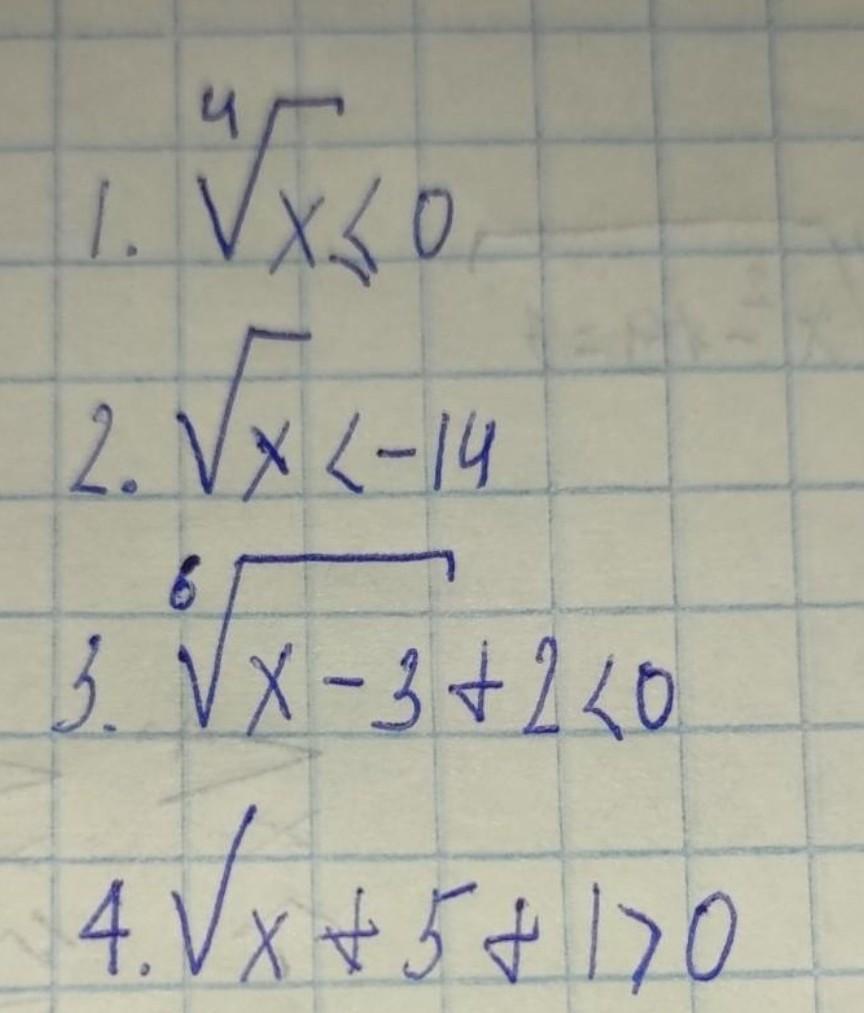 1. ⁴√x ≤ 0
2. √x < -14
3. ⁶√(x - 3) + 2 < 0
4. √x + 5 + 1 > 0